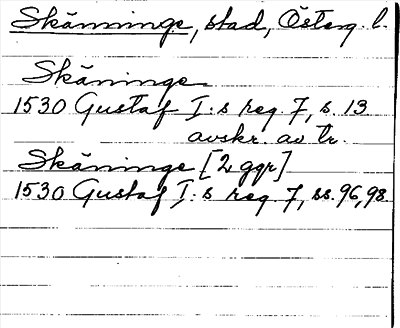 Skänninge, stad, Österg. l.
Skäninge
1530 Gustaf I:s reg. 7, s. 13
avskr. av tr.
Skäninge [2 ggr]
1530 Gustaf I:s reg. 7, ss. 96, 98